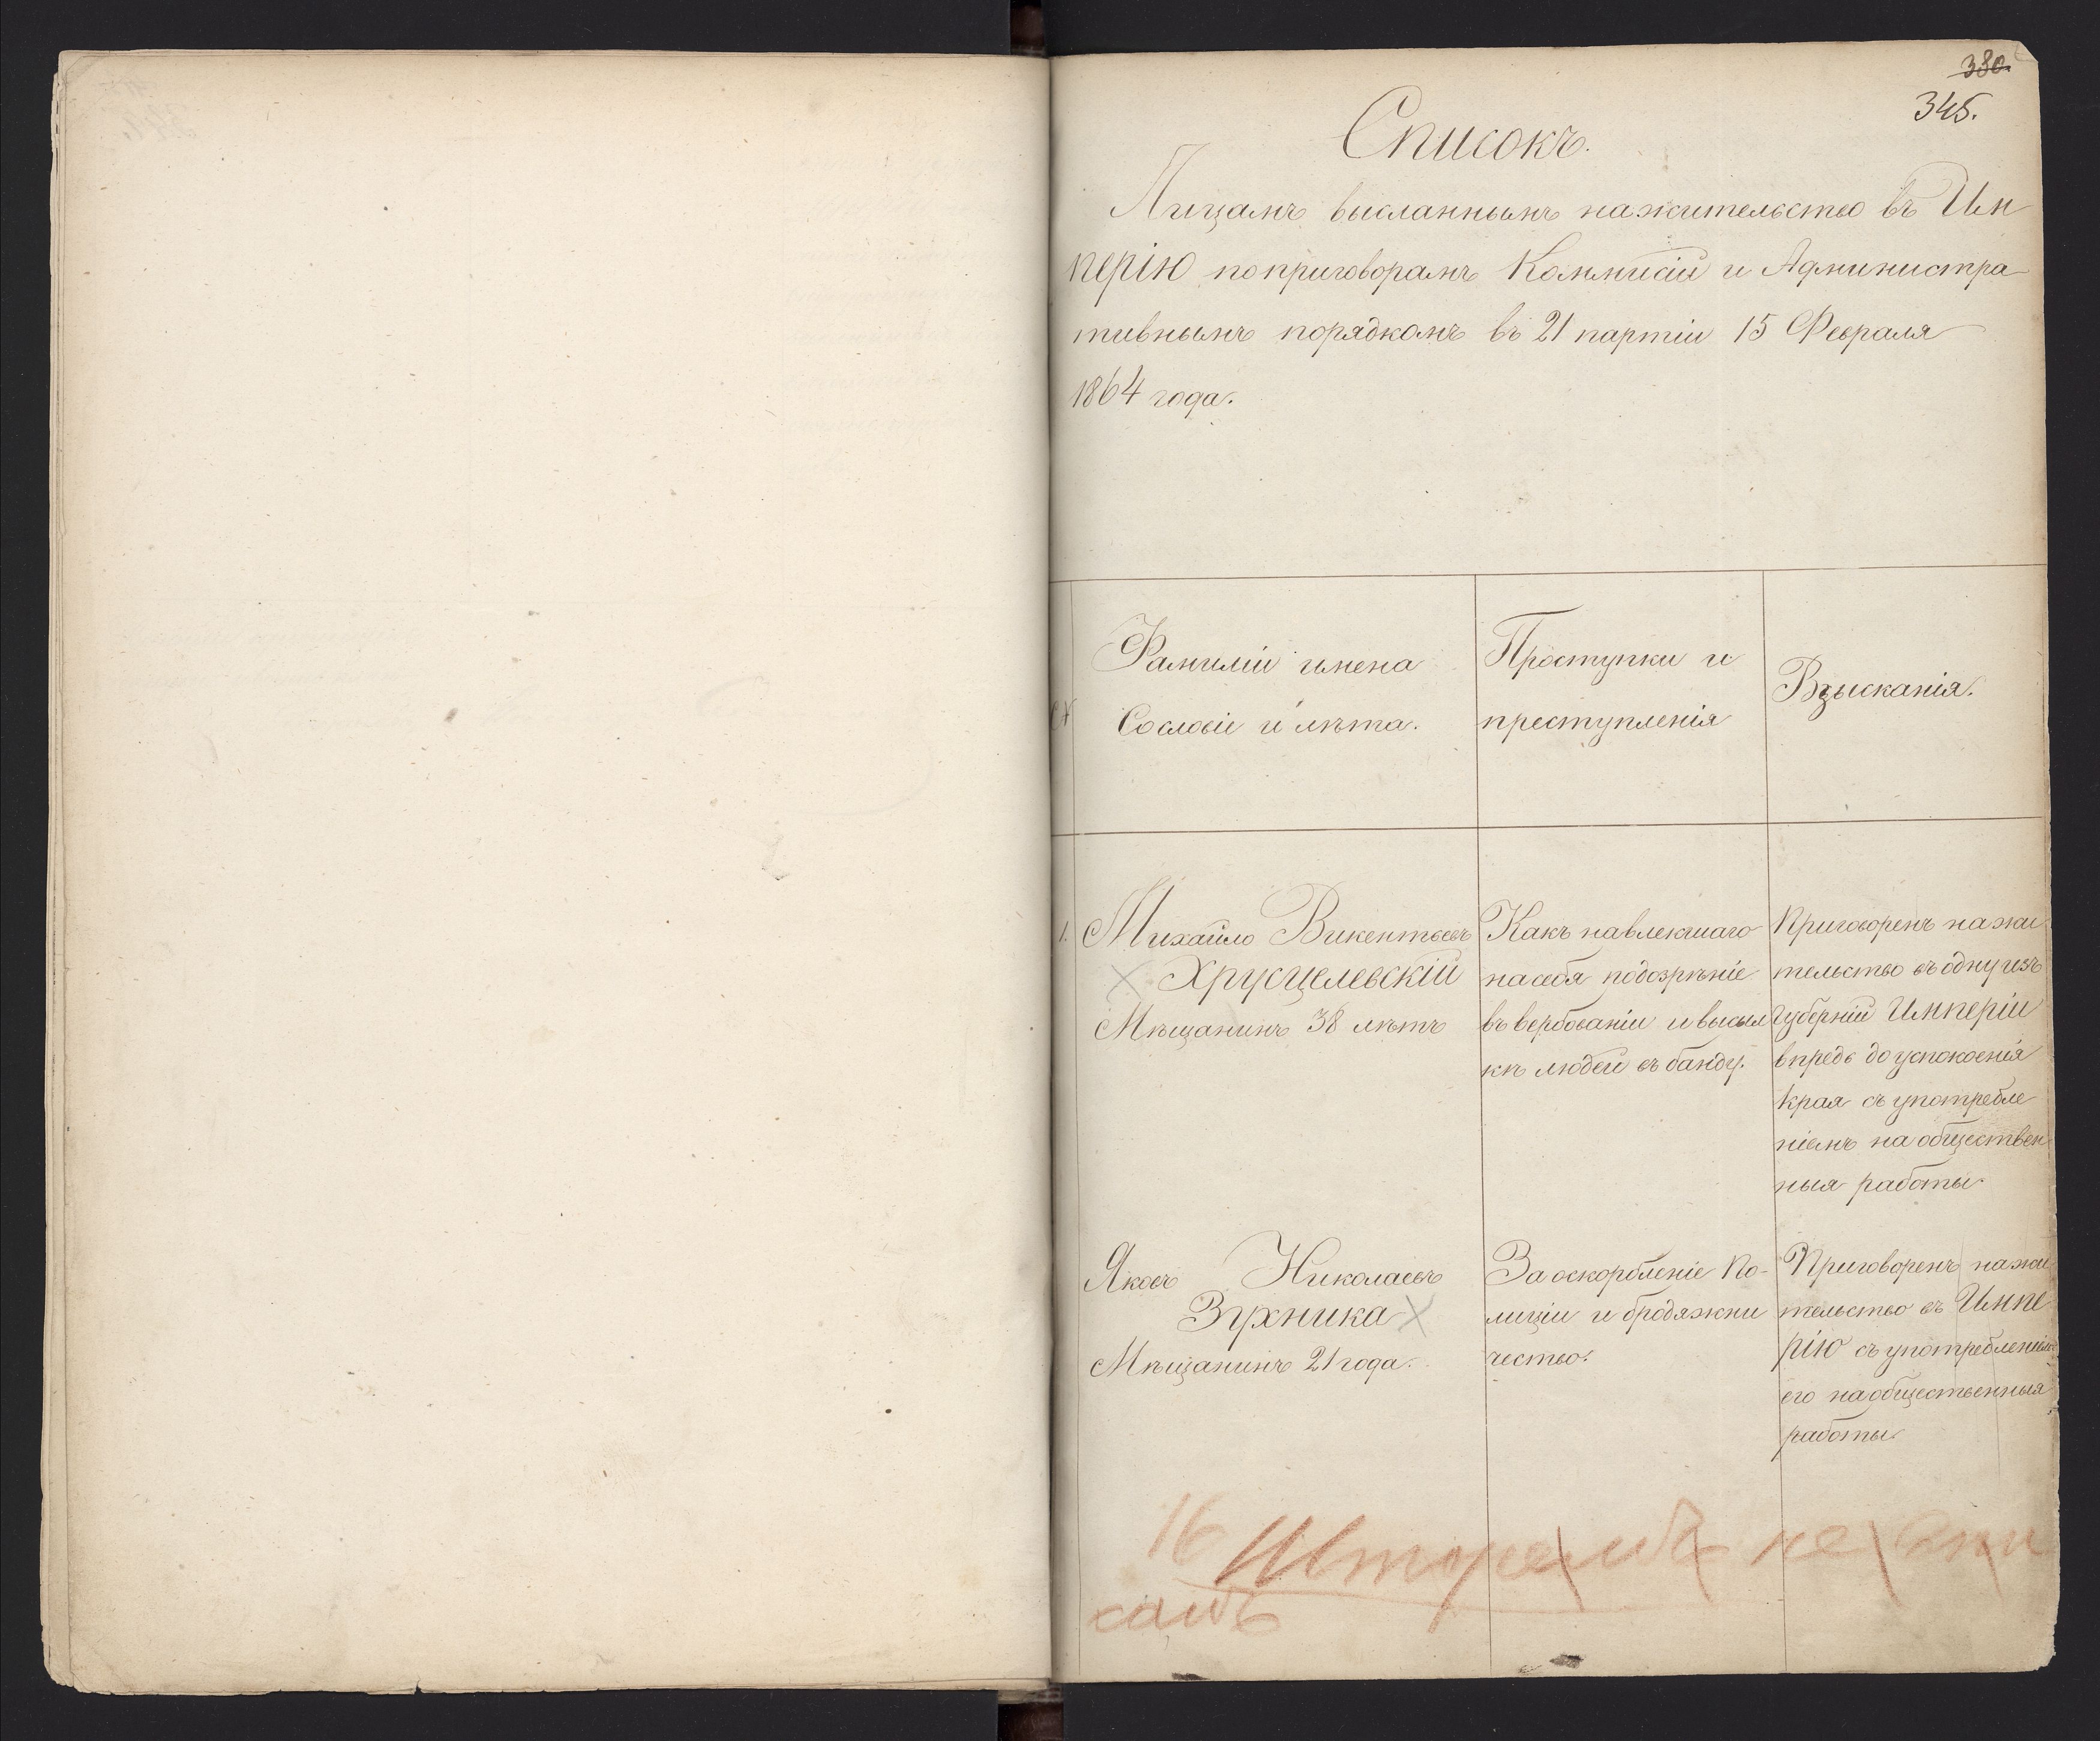 380.
345.
Списокъ.
Лицамъ высланнымъ на жительство въ Им
перію по приговорамъ Коммисіи и Администра
тивнымъ порядкомъ въ 21 партіи 15 Февраля
1864 года.
№
Фамиліи имена
Сословіе и лѣта.
Проступки и
преступленія
Взысканія.
1.
Михайло Викентьевъ
Хрусцелевскій
Мѣщанинъ 38 лѣтъ
Какъ навлекшаго
на себя подозрѣніе
въ вербованіи и высыл
кѣ людей въ банду.
Приговоренъ на жи
тельство въ одну изъ
Губерній Имперіи
впредь до успокоенія
края съ употребле
ніемъ на обществен
ныя работы.
Яковъ Николаевъ
Зухника
Мѣщанинъ 21 года.
За оскорбленіе По-
лиціи и бродяжни
чество.
Приговоренъ на жи
тельство въ Импе
рію съ употребленіемъ
его на общественныя
работы.
16